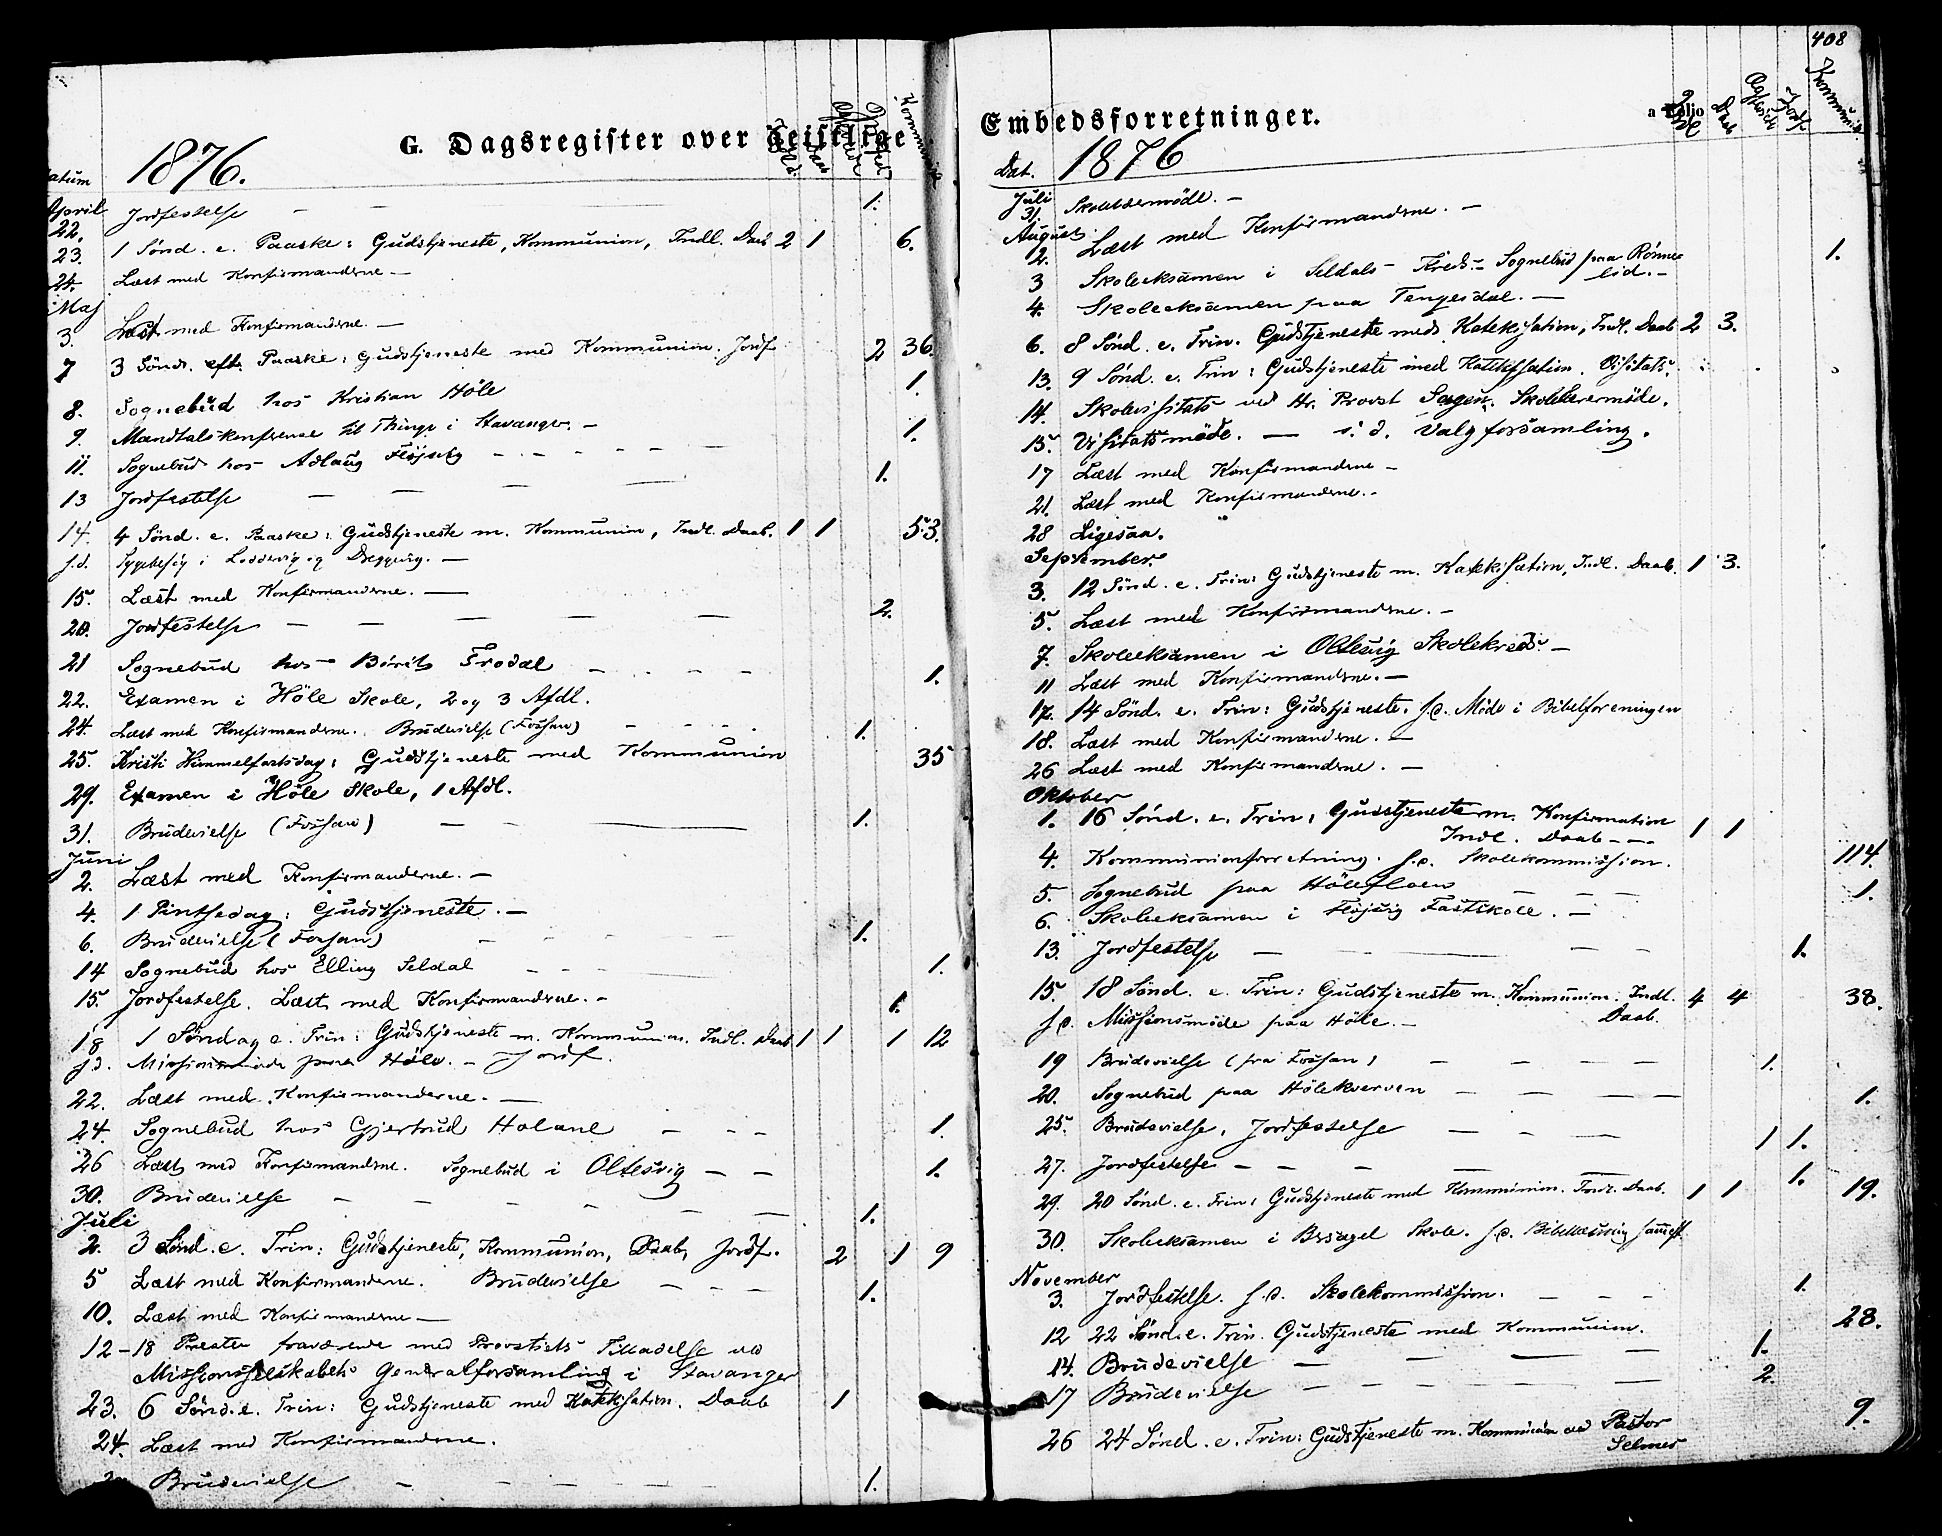 G. Dagsregister over Geistlige
1876.
Datum Indl. Daab Jordf. Kommunik.
April
22. Jordfestelse — — 1.
23. 1 Sønd. e. Paaske: Gudstjeneste, Kommunion, Indl. Daab 2 1 6.
24. Læst med Konfirmanderne —
Maj
3. Læst med Konfirmanderne. —
7 3 Sønd. eft. Paaske: Gudstjeneste med Kommunion. Jordf 2 36.
8. Sognebud hos Kristian Höle 1.
9. Mandtalskonference til Thinge i Stavanger. —
11. Sognebud hos Adlaug — — — — — 1.
13 Jordfestelse — — — — 1.
14. 4 Sønd. e. Paaske: Gudstjeneste m. Kommunion, Indl. Daab. 1 1 53.
s.d. Sygebesøg i og —
15. Læst med Konfirmanderne. —
20. Jordfestelse — — — — — 2.
21 Sognebud hos Börild Frodal — — — — 1.
22. Examen i Höle Skole, 2 og 3 Afdl.
24. Læst med Konfirmanderne. Brudevielse (Fossan) — — — 1.
25. Kristi Himmelfartsdag: Gudstjeneste med Kommunion 35
29. Examen i Höle Skole, 1 Afdl.
31. Brudevielse (Fossan) — — — 1.
Juni
2. Læst med Konfirmanderne. —
4. 1 Pintsedag: Gudstjeneste. —
6. Brudevielse (Fossan) — — — — 1.
14 Sognebud hos Elling Seldal — — — — 1.
15. Jordfestelse. Læst med Konfirmanderne. — 1.
18 1 Søndag e. Trin: Gudstjeneste m. Kommunion. Indl. Daab 1 1 1 12
s.d. Missionsmöde paa Höle. — Jordf.
22. Læst med Konfirmanderne. —
24. Sognebud hos Gjertrud Holane — — — 1.
26 Læst med Konfirmanderne. Sognebud i Oltesvig — — 1.
30. Brudevielse — — — — — — 1.
Juli
2. 3 Sønd. e. Trin: Gudstjeneste, Kommunion, Daab, Jordf. 2 1 9
5 Læst med Konfirmanderne. Brudevielse — — — 1.
10. Læst med Konfirmanderne —
12–18 Presten fraværende med Provstiets Tilladelse ved
Missionsselskabets Generalforsamling i Stavanger
23. 6 Sønd. e. Trin: Gudstjeneste med Katekisation. Daab 1
24. Læst med Konfirmanderne.
Brudevielse — — — — — 1.
Embedsforretninger.
408
a Folio
Dat. 1876 Indl. Daab Jordf. Kommunik.
Juli
31. Skoleskemöde. —
August
2. Læst med Konfirmanderne. —
3 Skoleeksamen i Seldals Kreds — Sognebud paa Rönnelid. — 1.
4. Skoleeksamen paa Tengesdal. —
6. 8 Sønd. e. Trin. Gudstjeneste med Katekisation, Indl. Daab 2 3.
13. 9 Sønd. e. Trin: Gudstjeneste med Katekisation. Visitats.
14. Skolevisitats ved Hr. Provst Sagen. Skolelærermöde.
15. Visitatsmöde. — s. d. Valgforsamling.
17 Læst med Konfirmanderne —
21. Læst med Konfirmanderne. —
28 Ligesaa.
September.
3. 12 Sønd. e. Trin: Gudstjeneste m. Katekisation, Indl. Daab. 1 3.
5. Læst med Konfirmanderne. —
7. Skoleeksamen i Oltesvig Skolekreds. —
11 Læst med Konfirmanderne. —
17. 14 Sønd. e. Trin: Gudstjeneste. s.d. Möde i Bibelforeningen
18. Læst med Konfirmanderne. —
26 Læst med Konfirmanderne. —
Oktober
1. 16 Sønd. e. Trin: Gudstjeneste m. Konfirmation
Indl. Daab — — 1 1
4. Kommunionforretning. s.d. Skolekommission. 114.
5. Sognebud paa Höle — — — 1.
6. Skoleeksamen i Fastskole. —
13. Jordfestelse — — — 1.
15. 18 Sønd. e. Trin: Gudstjeneste m. Kommunion. Indl. 4 4 38.
Daab.
s.d. Missionsmöde paa Höle. —
19 Brudevielse (fra Fossan) — — — — 1.
20. Sognebud paa Hölekverven — — — — 1.
25. Brudevielse, Jordfestelse — — — — 1 1.
27. Jordfestelse — — — — — 1.
29. 20 Sønd. e. Trin: Gudstjeneste med Kommunion. Indl. Daab. 1 1 19.
30. Skoleeksamen i Bersagel Skole. s.d. Bibellæsning sammest
November
3. Jordfestelse. s.d. Skolekommission. — — — 1.
12 22 Sønd. e. Trin. Gudstjeneste med Kommunion. 28.
14. Brudevielse — — — — 1.
17 Brudevielse — — — — — 2.
26 24 Sønd. e. Trin: Gudstjeneste m. Kommunion ved Pastor
Selmer 9.